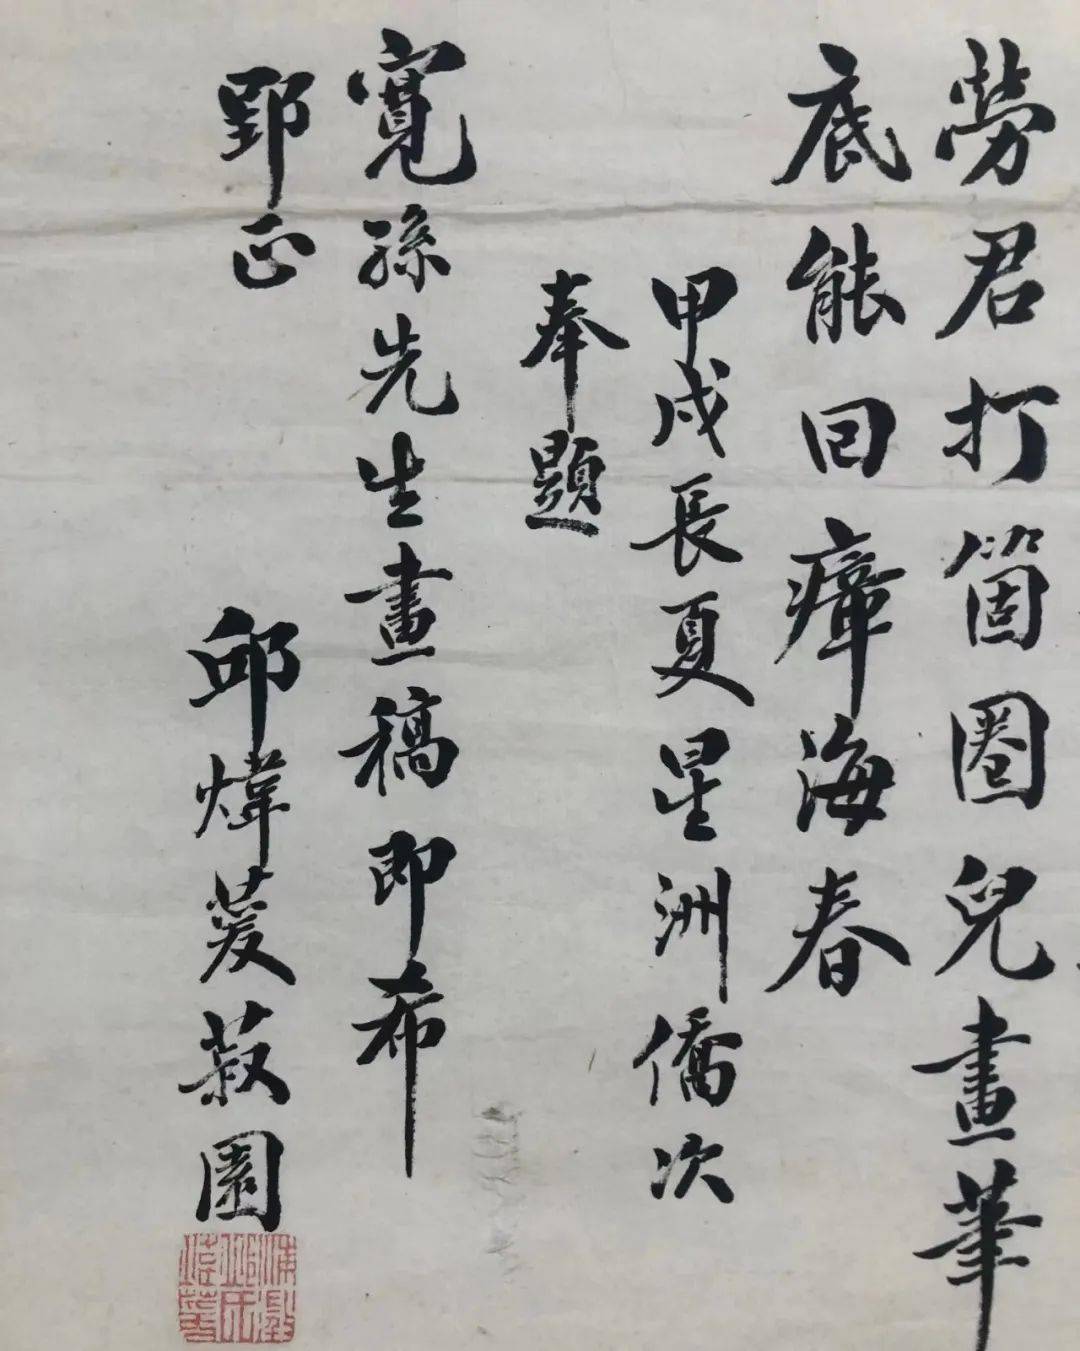 勞君打箇圈兒畫筆
底能回瘴海春
甲戌長夏星洲僑次
奉題
寬孫先生畫稿即希
郢正
邱煒萲菽園